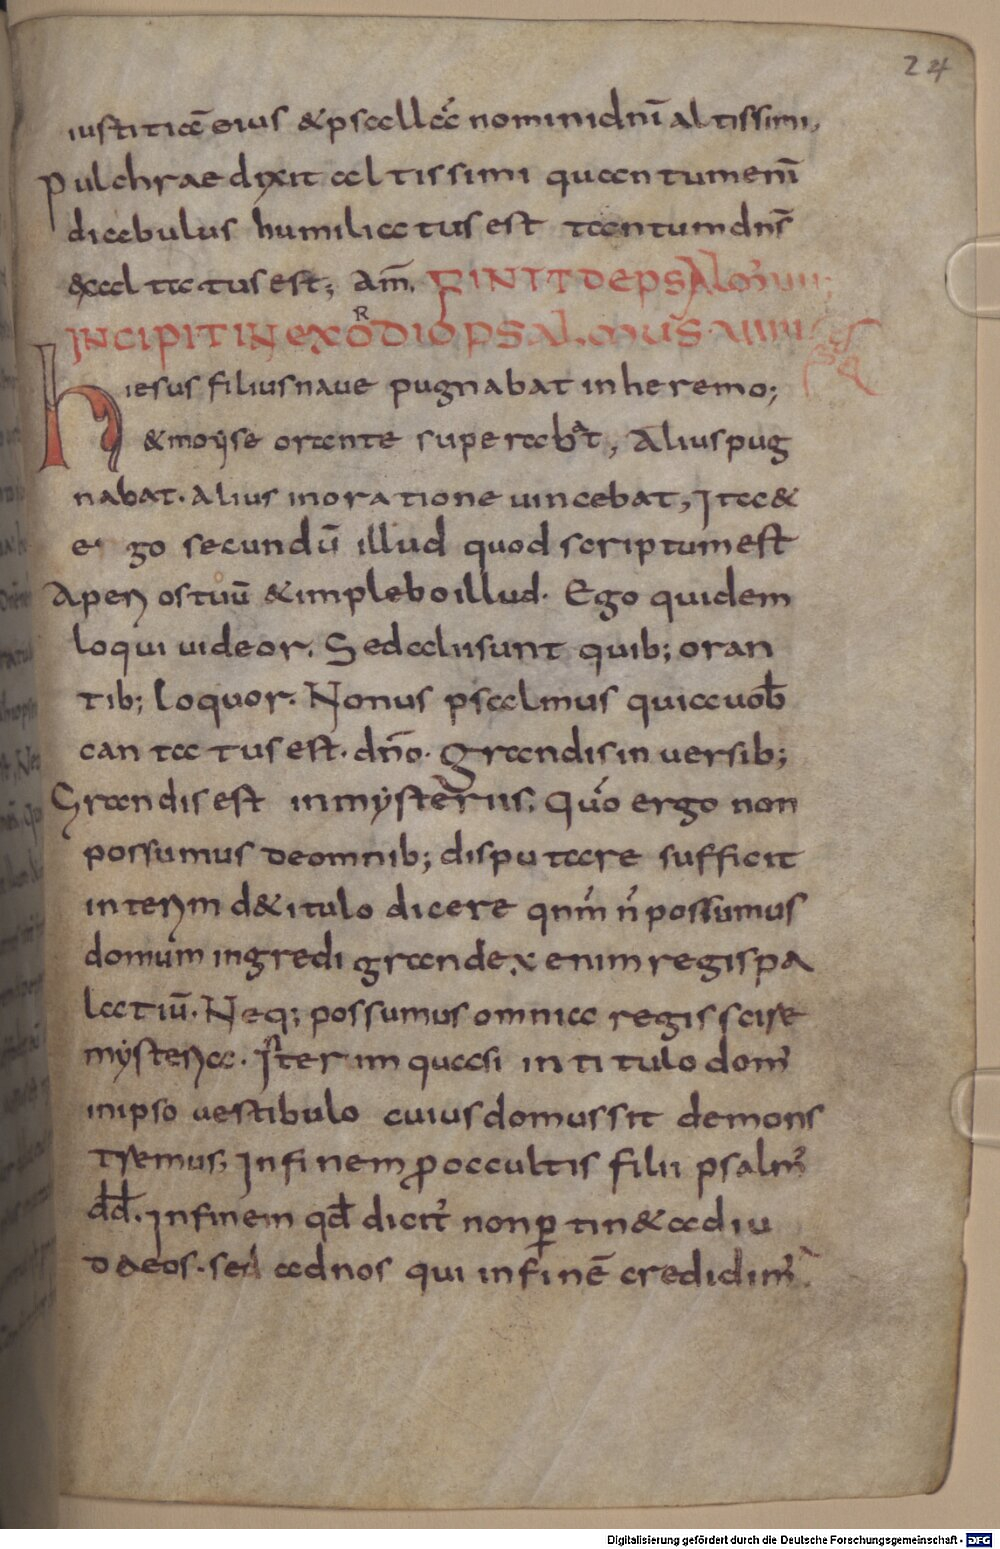 24
iustitia ē eius & psallā nomini dnī altissimi,
Pulchrae dixit altissimi quantum enī
diabulus humiliatus est tantum dns̄
exaltatus est; am̄. FINIT DE PSALMO VII
INCIPIT IN EXORDIO PSALMUS VIIII
hiesus filius naue pugnabat in heremo;
& moyse orante superabat, Alius pug
nabat. Alius in oratione uincebat, Ita &
ego secundū illud quod scriptum est
Aperi os tuū & implebo illud. Ego quidem
loqui uideor. Sed alii sunt quib; oran
tib; loquor. Nonus psalmus qui a uob̄
cantatus est. dn̄o. grandis in uersib;
Grandis est in mysteriis. Quo ergo non
possumus de omnib; disputare sufficit
interim d& itulo dicere qnm̄ n̄ possumus
domum ingredi grandex enim regis pa
latiū. Neq; possumus omnia regis scire
mysteria. Iterim quasi in titulo dom'
in ipso uestibulo cuius domus sit demons
tremus; In finem ꝓ occultis filii psalm'
dd̄. In finem qd̄ dicit' non ꝑtin& ad iu
daeos. sed ad nos qui in finē credidim'.
Digitalisierung gefördert durch die Deutsche Forschungsgemeinschaft - DFG